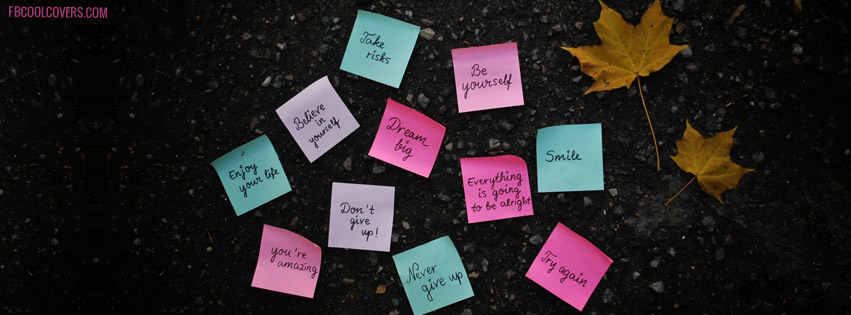 FBCOOLCOVERS.COM
Take
risks
Be
yourself
Believe
in
yourself
Dream
big
Smile
Enjoy
your life
Everything
is going
to be alright
Don't
give
up!
you're
amazing
Never
give up
Try again